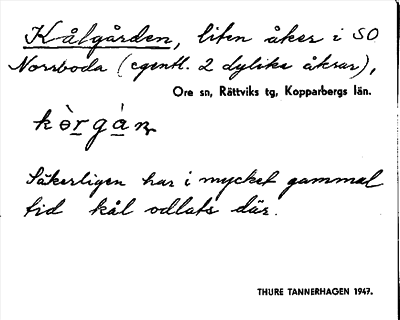 Kålgården, liten åker i SO
Norrboda (egentl. 2 dylika åkrar),
Ore sn, Rättviks tg, Kopparbergs län.
kòrgàn
Säkerligen har i mycket gammal
tid kål odlats där.
THURE TANNERHAGEN 1947.